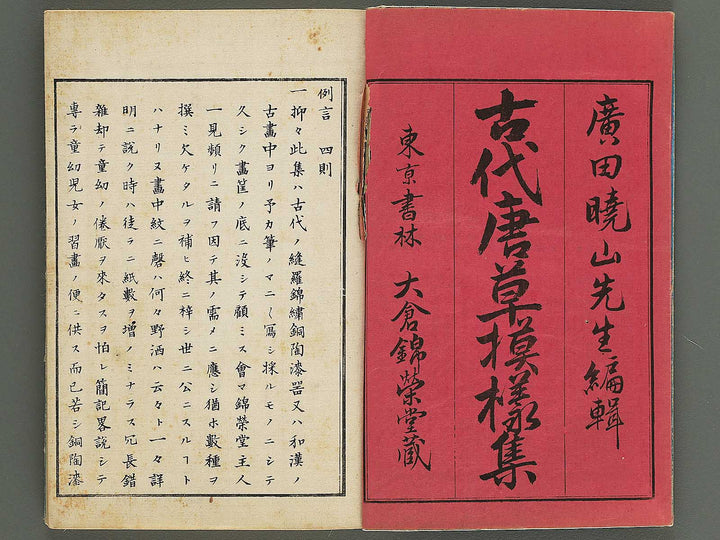 廣田曉山先生編輯
古代唐草摸様集
東京書林 大倉錦榮堂藏
例言 四則
一抑々此集ハ古代ノ縫羅錦繡銅陶漆器又ハ和漢ノ
古畫中ヨリ予カ筆ノマニ〱寫シ採ルモノニシテ
久シク畫筐ノ底ニ沒シテ顧ミス會マ錦榮堂主人
一見頻リニ請フ因テ其ノ需メニ應シ猶ホ數種ヲ
撰ミ欠ケタルヲ補ヒ終ニ梓シ世ニ公ニスルヿト
ハナリヌ畫中紋ニ磬ハ何々野酒ハ云々ト一々詳
明ニ說ク時ハ徒ラニ紙數ヲ增ノミナラス冗長錯
雜却テ童幼ノ倦厭ヲ來タスヲ怕レ簡記畧說シテ
專ラ童幼兒女ノ習畫ノ便ニ供ス而已若シ銅陶漆